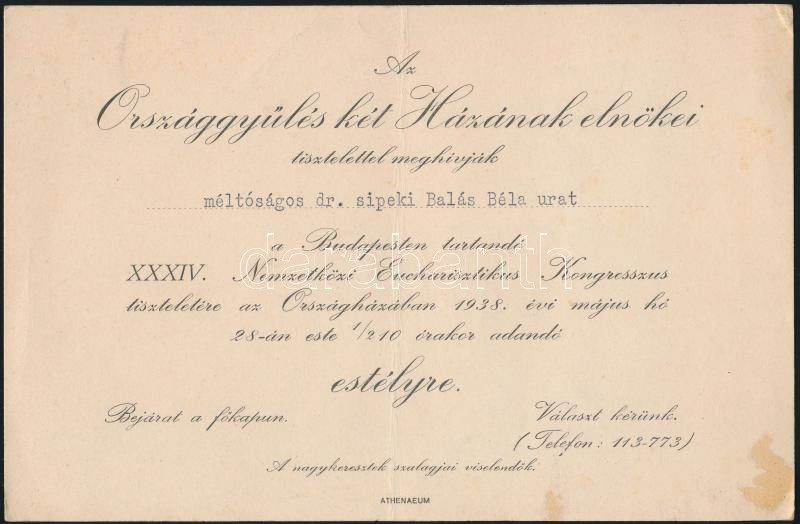 Az
Országgyűlés két Házának elnökei
tisztelettel meghívják
méltóságos dr. sipeki Balás Béla urat
a Budapesten tartandó
XXXIV. Nemzetközi Eucharisztikus Kongresszus
tiszteletére az Országházában 1938. évi május hó
28-án este 1/210 órakor adandó
estélyre.
Bejárat a főkapun.
Választ kérünk.
(Telefon: 113-773)
A nagykeresztek szalagjai viselendők.
ATHENAEUM
darabanth